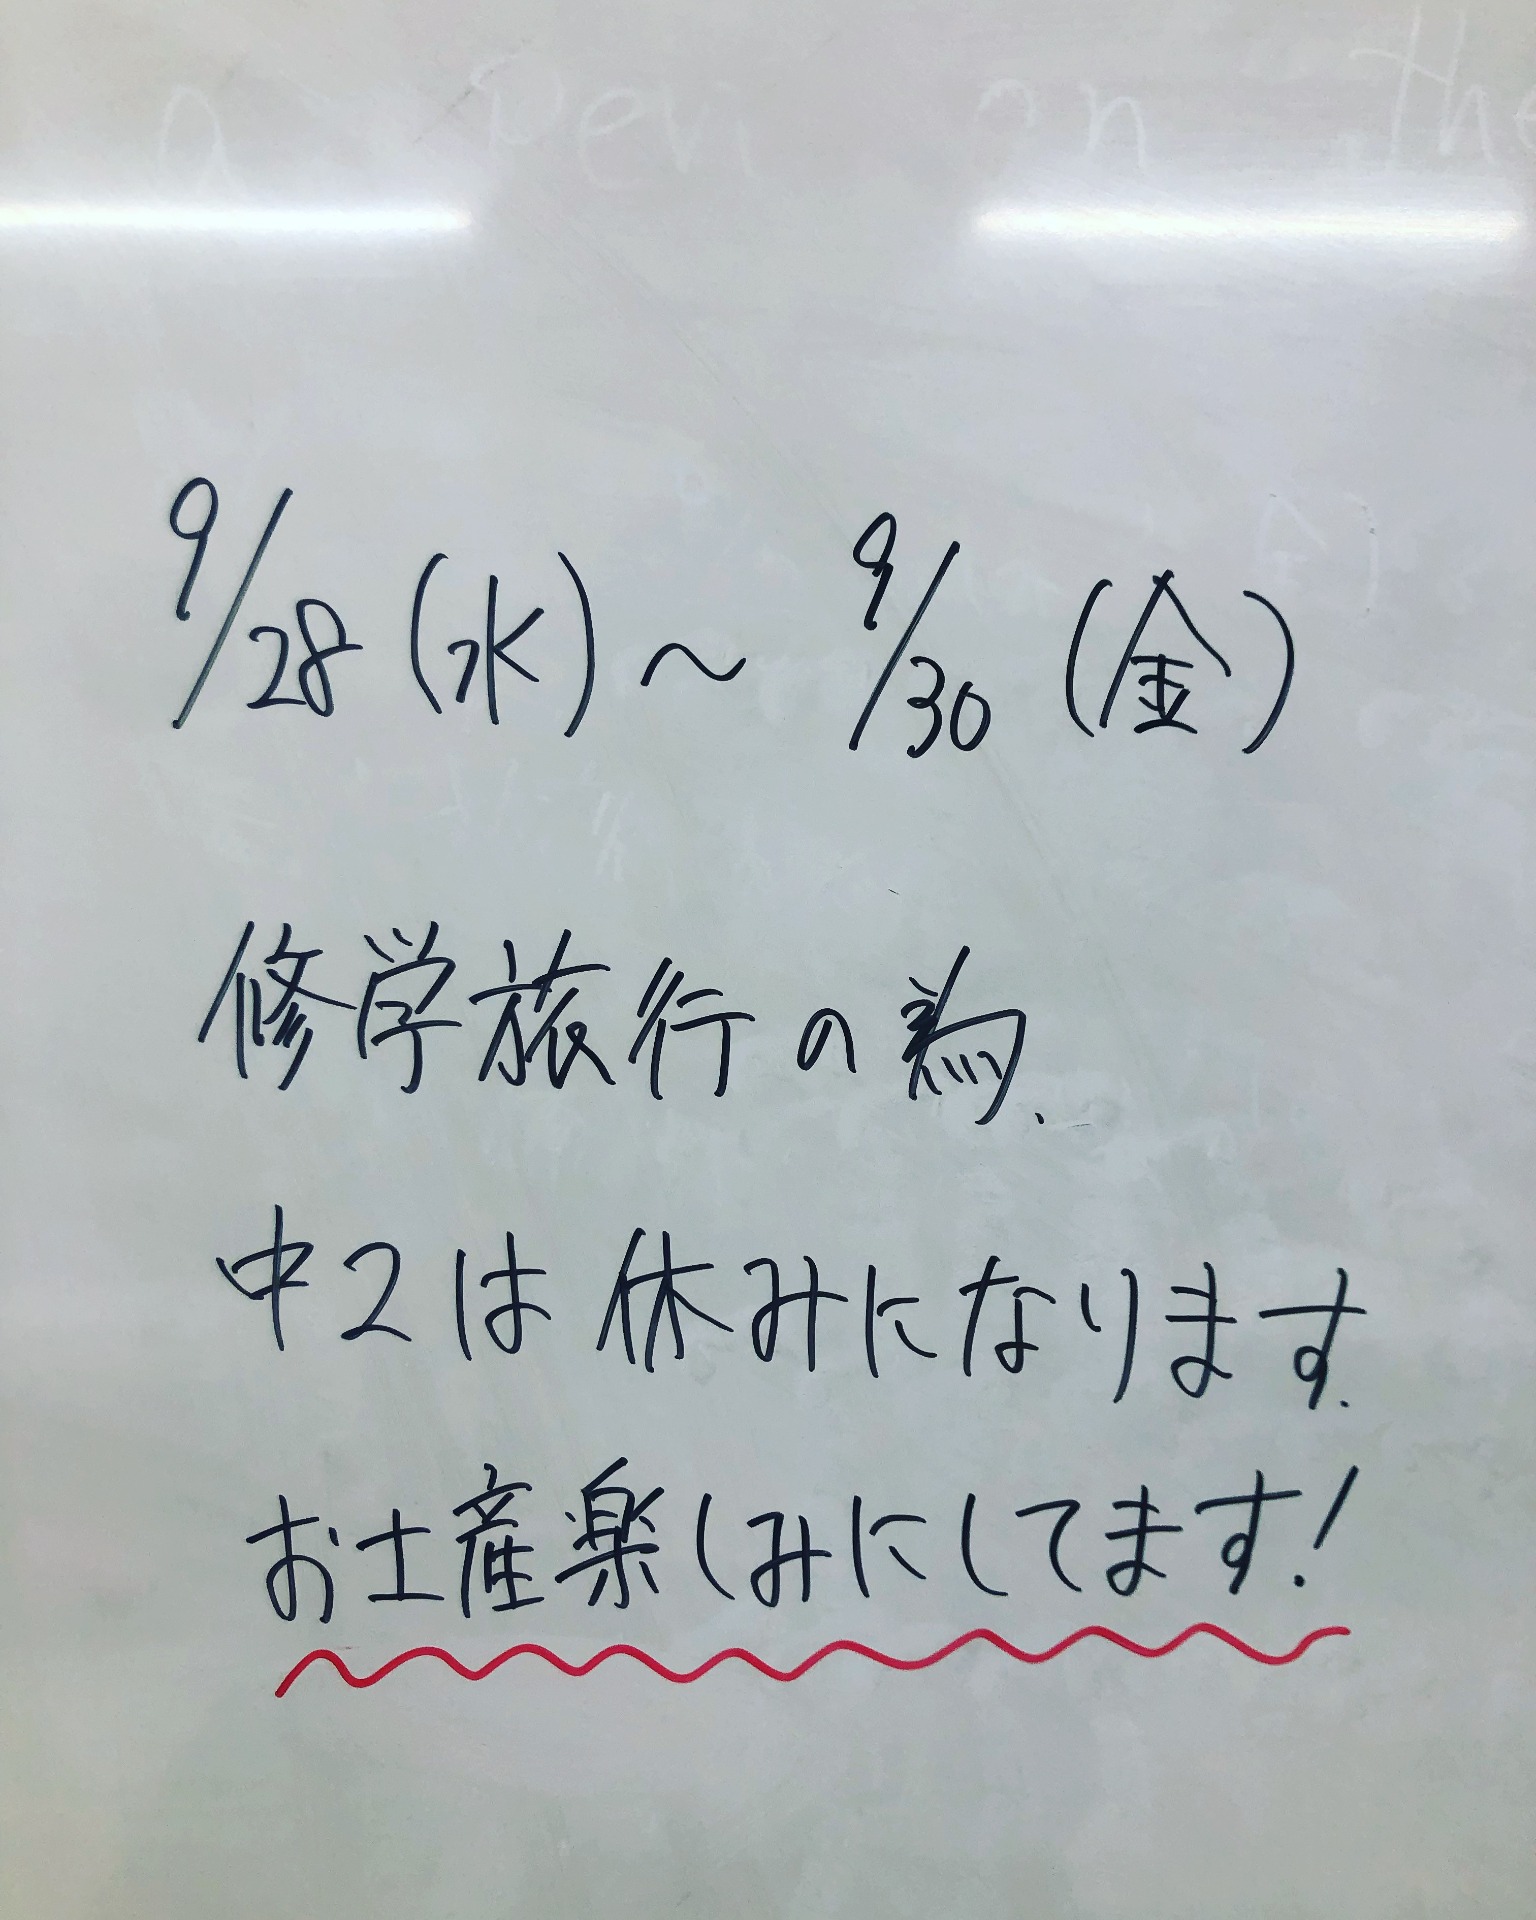 a pen on the
9/28(水)〜9/30(金)
修学旅行の為、
中2は休みになります.
お土産楽しみにしてます!